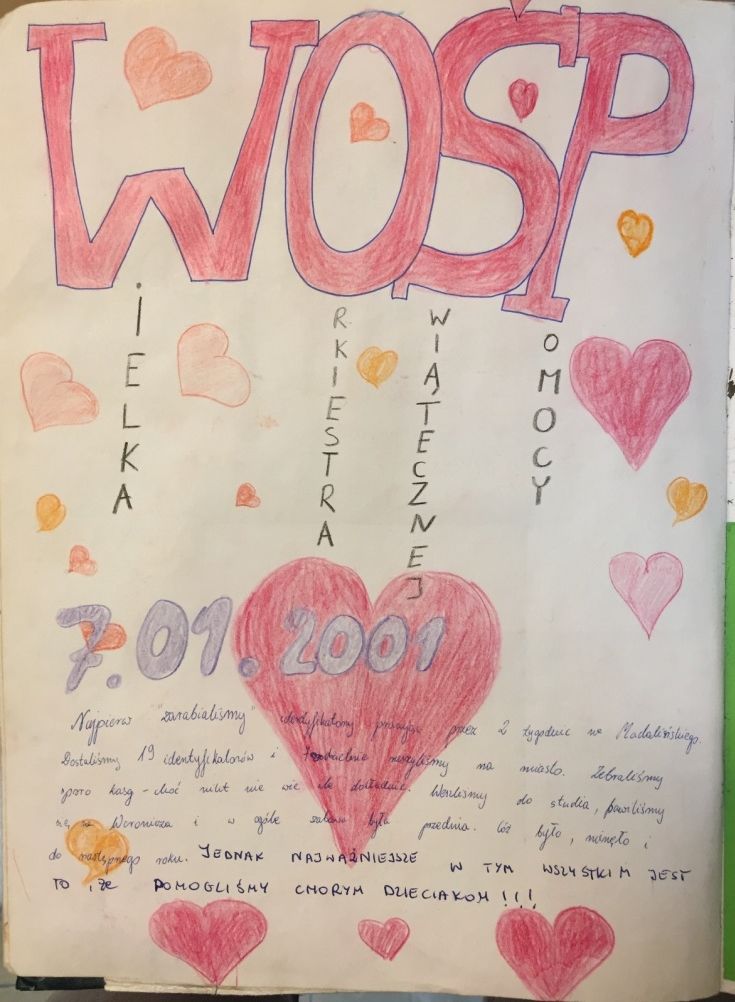 WOŚP
iELKA
RKIESTRA
WIĄTECZNEJ
OMOCY
7.01.2001
Najpierw "zarabialiśmy" identyfikatory pracując przez 2 tygodnie w Madalińskiego.
Dostaliśmy 19 identyfikatorów i ruszyliśmy na miasto. Zebraliśmy
sporo kasy - choć nikt nie wie ile dokładnie. Weszliśmy do studia, bawiliśmy
się na Woronicza i w ogóle zabawa była przednia. Cóż było, minęło i
do następnego roku. JEDNAK NAJWAŻNIEJSZE W TYM WSZYSTKIM JEST
TO, ŻE POMOGLIŚMY CHORYM DZIECIAKOM!!!